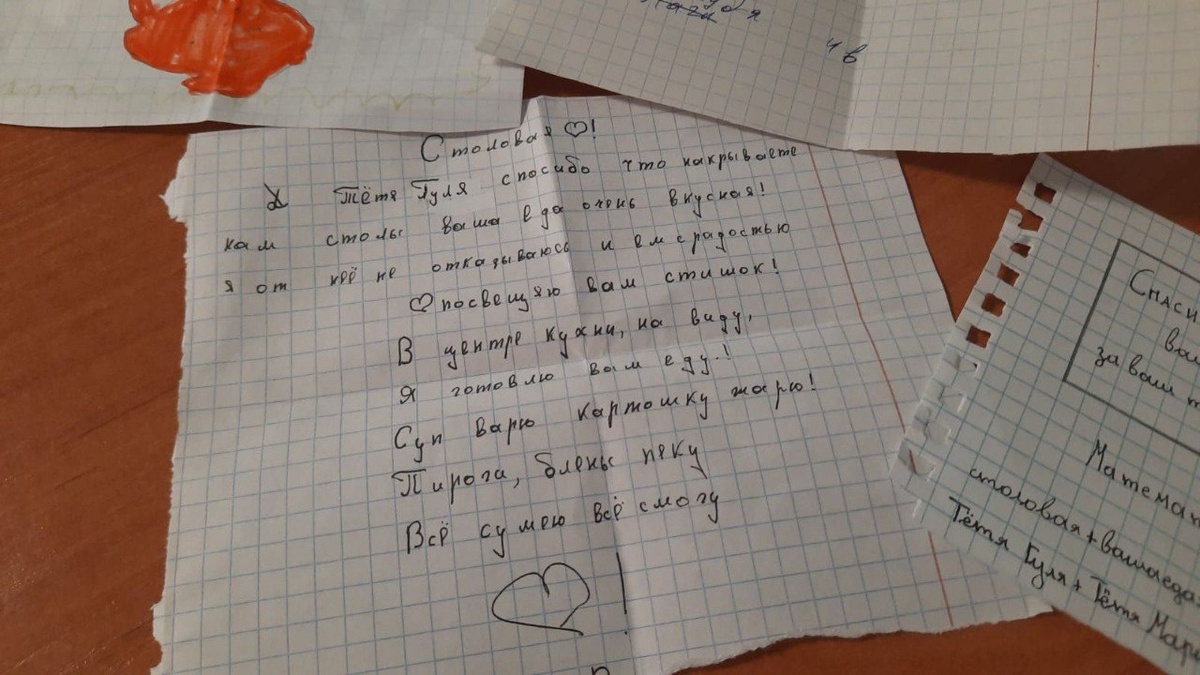 4 в
Столовая ♡!
Тётя Гуля спосибо что накрываете
нам столы ваша еда очень вкусная!
я от неё не отказываюсь и ем с радостью
♡ посвещяю вам стишок!
В центре кухни, на виду,
Я готовлю вам еду.!
Суп варю картошку жарю!
Пироги, блены пеку
Всё сумею всё смогу
♡ !
Спаси
ва
за ваш т
Математ
столовая + ваша еда
Тётя Гуля + Тётя Мари